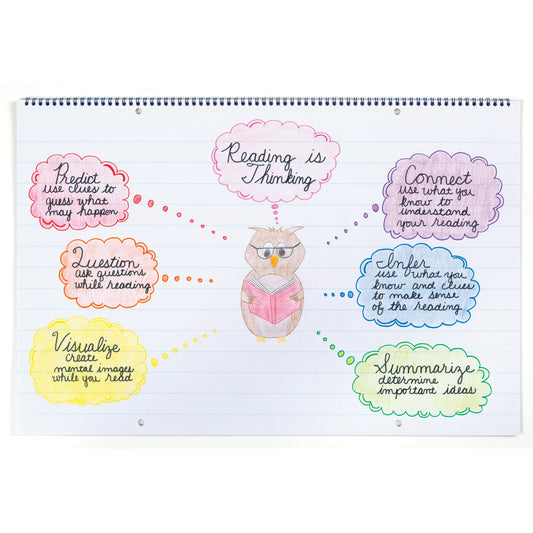 Reading is
Thinking
Predict
use clues to
guess what
may happen
Question
ask questions
while reading
Visualize
create
mental images
while you read
Connect
use what you
know to
understand
your reading
Infer
use what you
know and clues
to make sense
of the reading
Summarize
determine
important ideas